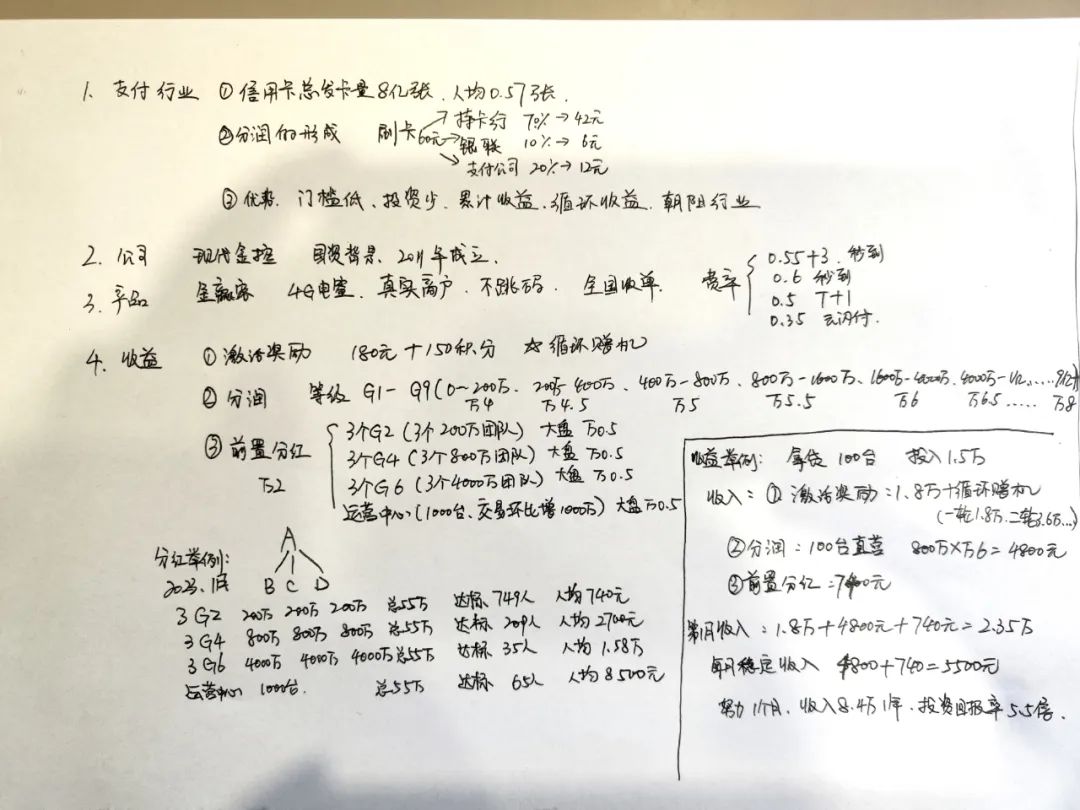 1. 支付行业 ①信用卡总发卡量8亿张、人均0.57张.
②分润的形成 刷卡60元 → 持卡行 70%→42元
→ 银联 10%→6元
→ 支付公司 20%→12元
③优势. 门槛低、投资少、累计收益、循环收益、朝阳行业
2. 公司 现代金控 国资背景、2011年成立.
3. 产品 金赢家 4G电签、真实商户、不跳码、全国收单. 费率
0.55+3 秒到
0.6 秒到
0.5 T+1
0.35 云闪付.
4. 收益 ①激活奖励 180元+150积分 ☆循环赠机
②分润 等级 G1-G9(0~200万、200万-400万、400万-800万、800万-1600万、1600万-4000万、4000万-1亿......
万4 万4.5 万5 万5.5 万6 万6.5...... 万8
③前置分红 万2
3个G2(3个200万团队) 大盘 万0.5
3个G4(3个800万团队) 大盘 万0.5
3个G6(3个4000万团队) 大盘 万0.5
运营中心(1000台、交易环比增1000万) 大盘万0.5
分红举例:
2023.1月
A
B C D
3G2 200万 200万 200万 总55万 达标 749人 人均740元
3G4 800万 800万 800万 总55万 达标 209人 人均2700元
3G6 4000万 4000万 4000万 总55万 达标 35人 人均1.58万
运营中心 1000台. 总55万 达标 65人 人均8500元
收益举例: 拿货100台 投入1.5万
收入: ①激活奖励=1.8万+循环赠机
(一轮1.8万.二轮3.6万...)
②分润: 100台直营 800万×万6=4800元
③前置分红=740元
第1月收入: 1.8万+4800元+740元=2.35万
每月稳定收入 4800+740=5500元
努力1个月、收入8.4万1年、投资回报率5.5倍.